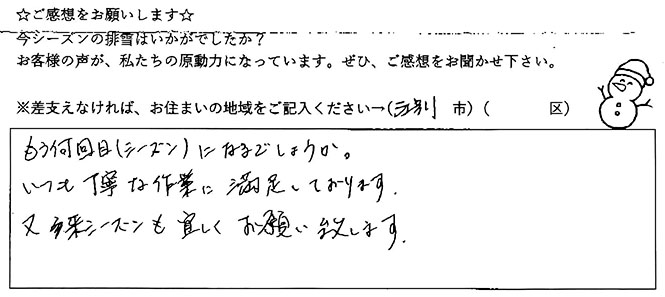 ☆ご感想をお願いします☆
今シーズンの排雪はいかがでしたか？
お客様の声が、私たちの原動力になっています。ぜひ、ご感想をお聞かせ下さい。
※差支えなければ、お住まいの地域をご記入ください→（江別 市）（ 区）
もう何回目(シーズン)になるでしょうか。
いつも丁寧な作業に満足しております.
又来シーズンも宜しくお願い致します.